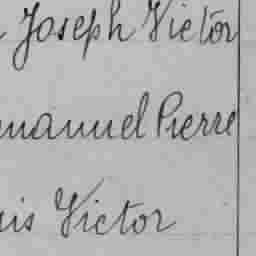 Joseph Victor
manuel Pierre
uis Victor